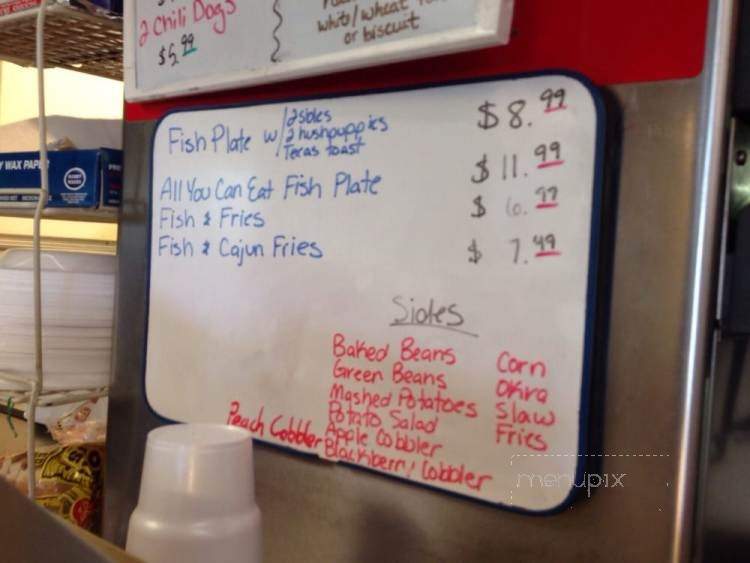 2 Chili Dogs
$5.99
white/wheat
or biscuit
Fish Plate w/ 2 sides
2 hushpuppies
Texas toast
$8.99
All You Can Eat Fish Plate $11.99
Fish & Fries $6.99
Fish & Cajun Fries $7.49
Sides
Baked Beans Corn
Green Beans Okra
Mashed Potatoes Slaw
Potato Salad Fries
Peach Cobbler Apple Cobbler
Blackberry Cobbler
WAX PAPER
menupix